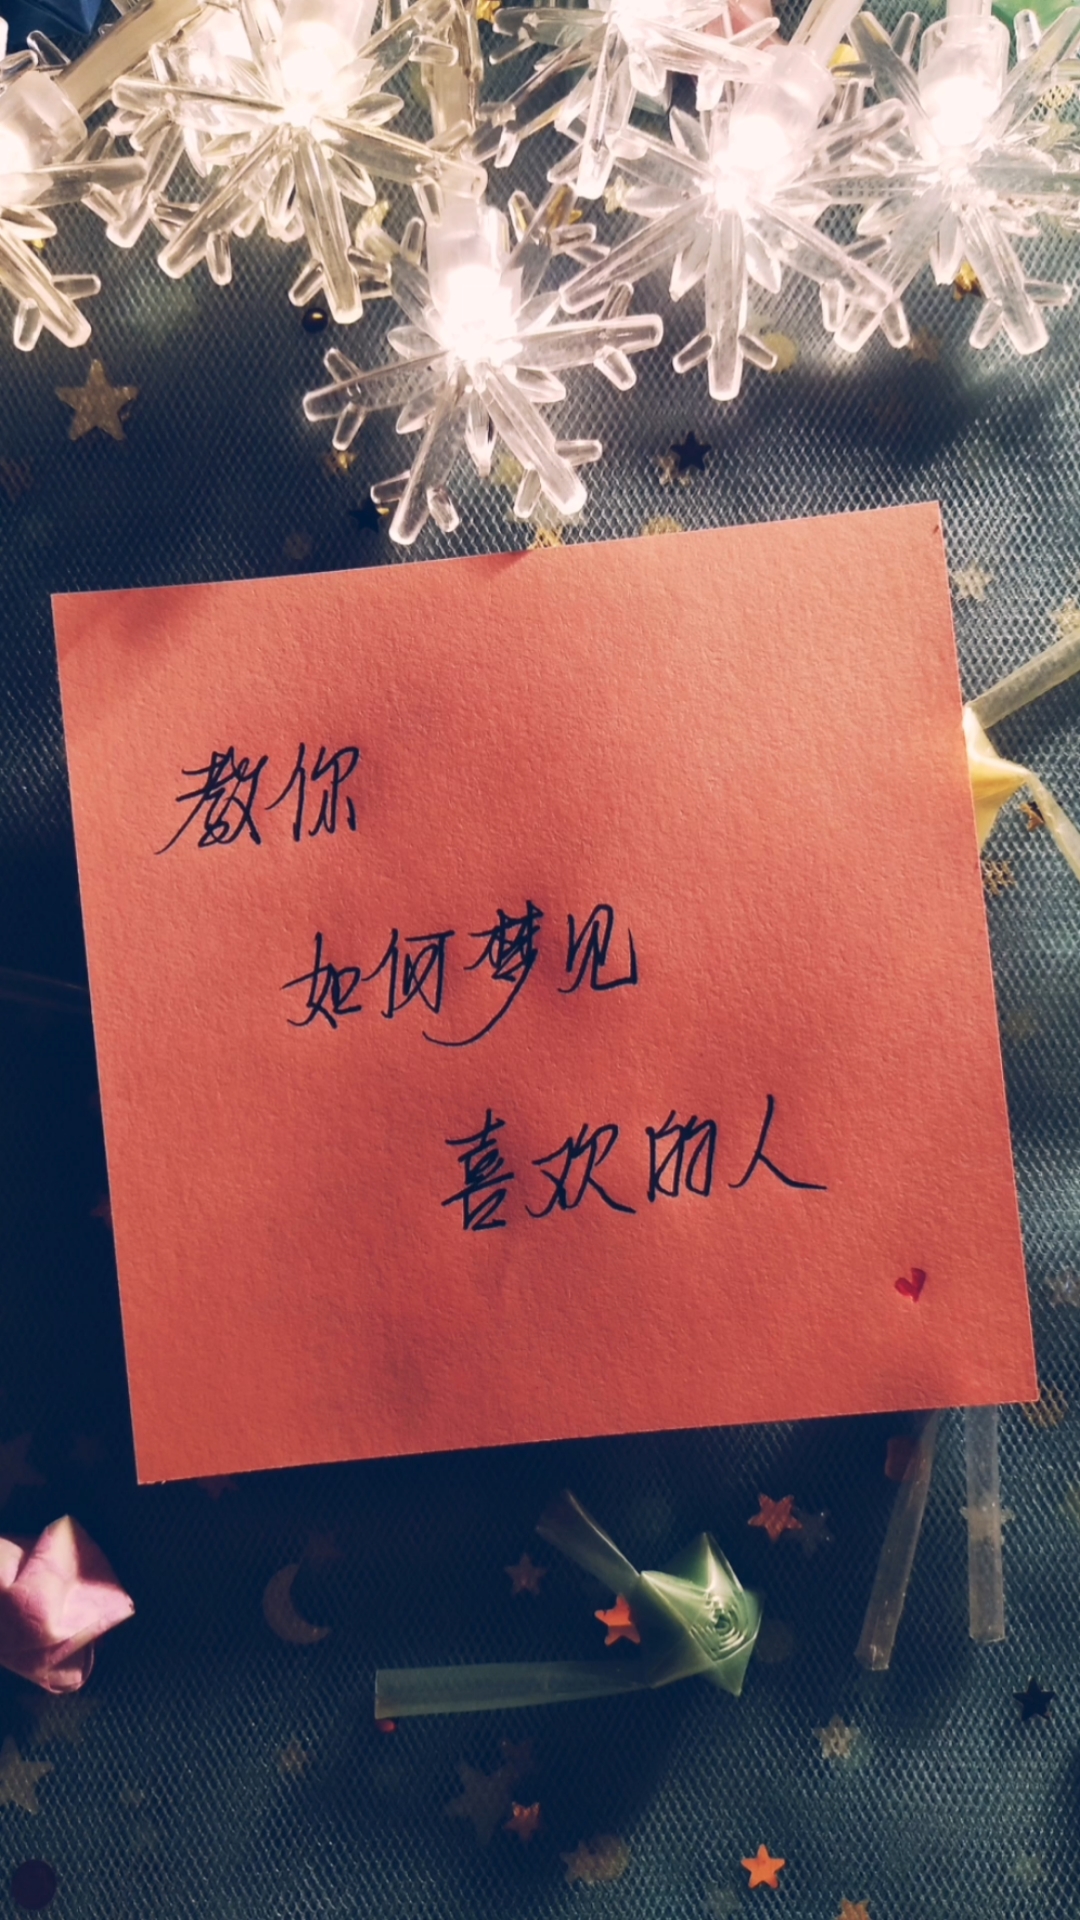 教你
如何梦见
喜欢的人